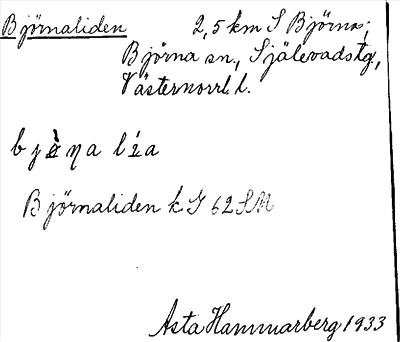 Björnaliden 2,5 km S Björna;
Björna sn., Själevads tg,
Västernorrl. l.
Björnaliden k J 62 SM
Asta Hammarberg 1933